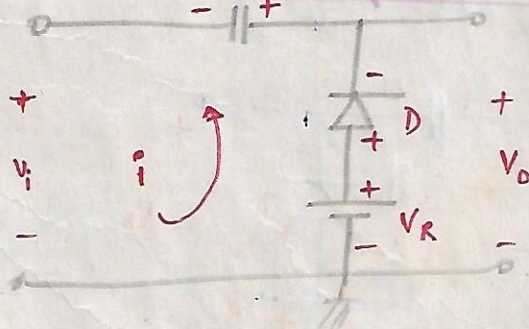 - +
- 
+ D +
+
Vi i + VO
VR
- - -